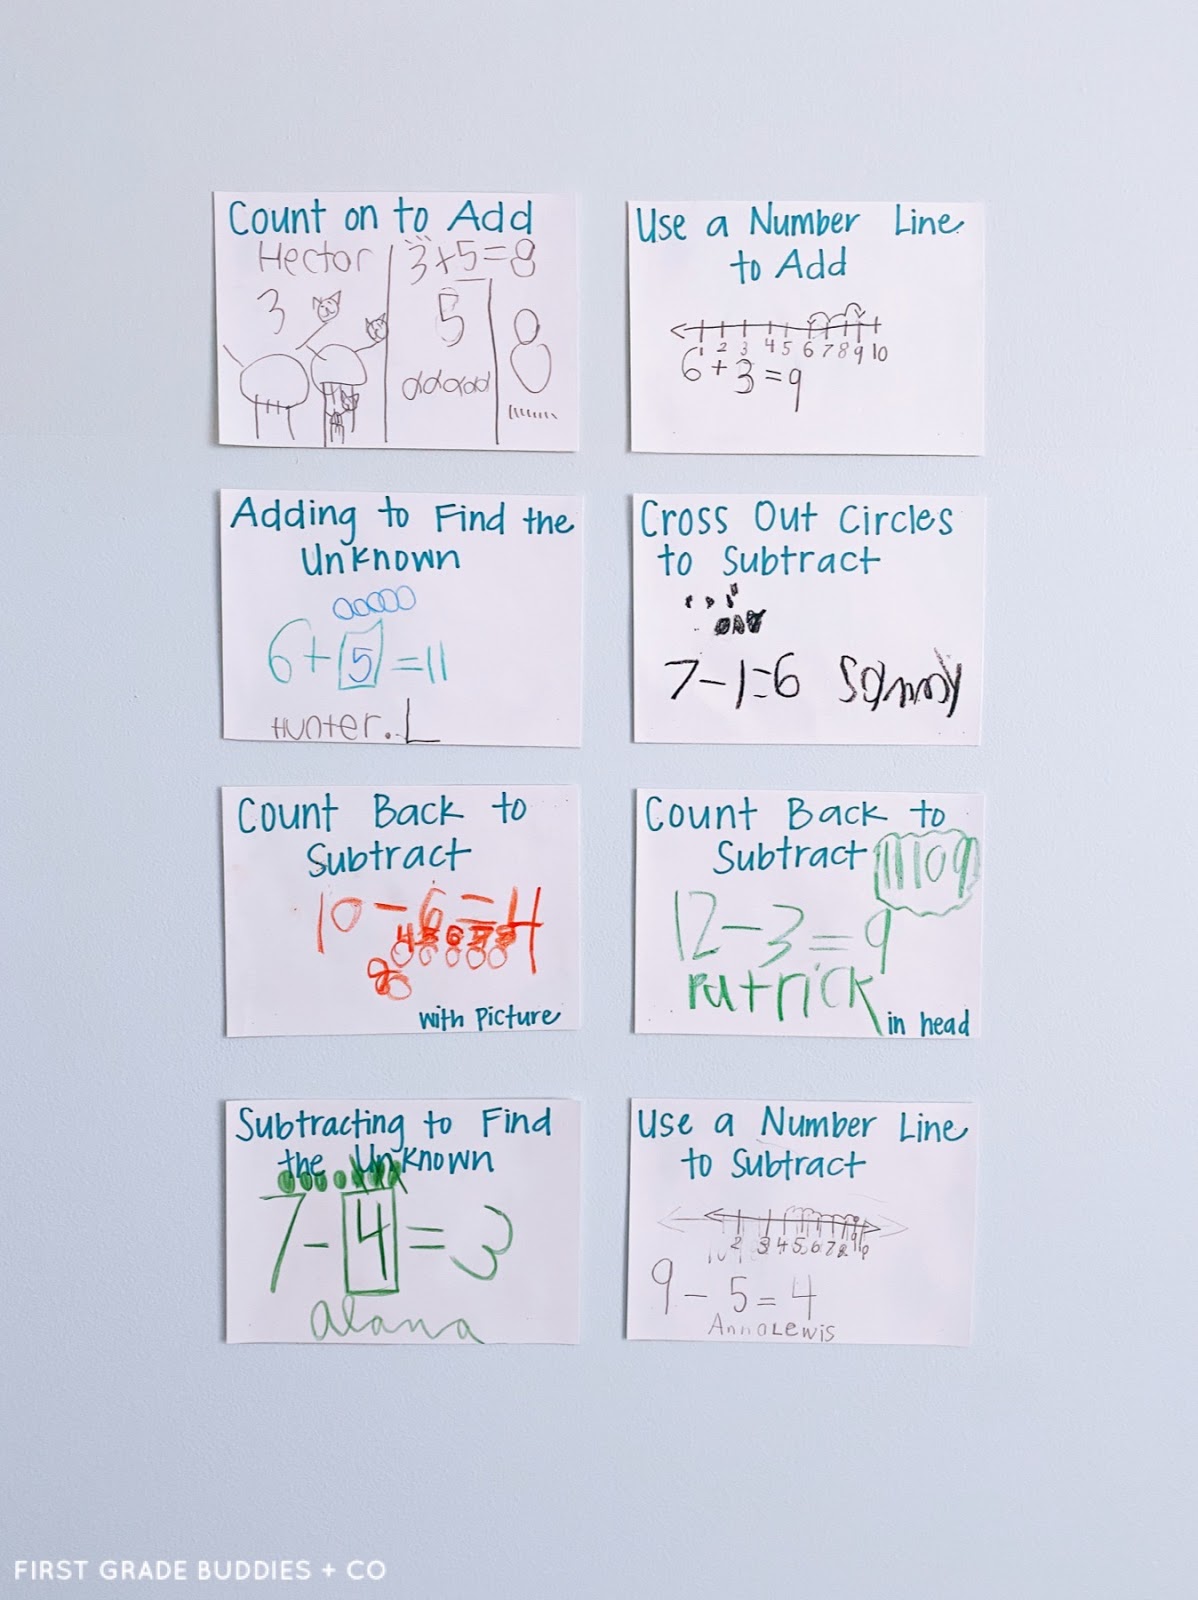 Count on to Add
Hector
3+5=8
3
5
8
Use a Number Line
to Add
1 2 3 4 5 6 7 8 9 10
6+3=9
Adding to Find the
Unknown
6+5=11
Hunter.L
Cross Out Circles
to Subtract
7-1=6 Sammy
Count Back to
Subtract
10-6=4
with Picture
Count Back to
Subtract
11 10 9
12-3=9
Patrick
in head
Subtracting to Find
the Unknown
7-4=3
alana
Use a Number Line
to Subtract
2 3 4 5 6 7 8 9
9-5=4
AnnaLewis
FIRST GRADE BUDDIES + CO